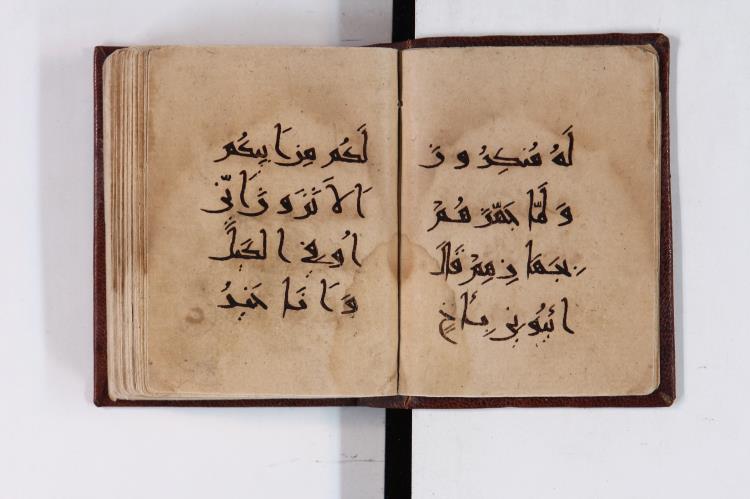 لَهُ مُنكِرُونَ
وَلَمَّا جَهَّزَهُمْ
بِجَهَازِهِمْ قَالَ
ائْتُونِي بِأَخٍ
لَكُم مِنْ أَبِيكُمْ
أَلَا تَرَوْنَ أَنِّي
أُوفِي الْكَيْلَ
وَأَنَا خَيْرُ